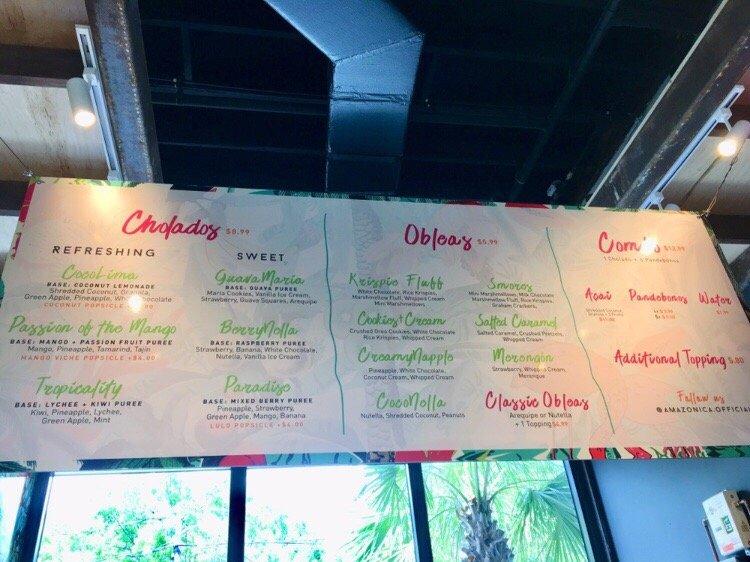 Cholados $8.99
REFRESHING
CocoLima
BASE: COCONUT LEMONADE
Shredded Coconut, Granola,
Green Apple, Pineapple, White Chocolate
COCONUT POPSICLE +$4.00
Passion of the Mango
BASE: MANGO + PASSION FRUIT PUREE
Mango, Pineapple, Tamarind, Tajin
MANGO VICHE POPSICLE +$4.00
Tropicality
BASE: LYCHEE + KIWI PUREE
Kiwi, Pineapple, Lychee,
Green Apple, Mint
SWEET
GuavaMaria
BASE: GUAVA PUREE
Maria Cookies, Vanilla Ice Cream,
Strawberry, Guava Squares, Arequipe
BerryNolla
BASE: RASPBERRY PUREE
Strawberry, Banana, White Chocolate,
Nutella, Vanilla Ice Cream
Paradiso
BASE: MIXED BERRY PUREE
Pineapple, Strawberry,
Green Apple, Mango, Banana
LULO POPSICLE +$4.00
Obleas $5.99
Krispie Fluff
White Chocolate, Rice Krispies,
Marshmallow Fluff, Whipped Cream
Mini Marshmallows
Cookies+Cream
Crushed Oreo Cookies, White Chocolate
Rice Krispies, Whipped Cream
CreamyNapple
Pineapple, White Chocolate,
Coconut Cream, Whipped Cream
CocoNolla
Nutella, Shredded Coconut, Peanuts
Smores
Mini Marshmallows, Milk Chocolate
Marshmallow Fluff, Rice Krispies,
Graham Crackers,
Salted Caramel
Salted Caramel, Crushed Pretzels,
Whipped Cream
Merengon
Strawberry, Whipped Cream,
Merengue
Classic Obleas
Arequipe or Nutella
+ 1 Topping $4.99
$12.99
1 Cholado + 5 Pandebonos
Açai
Pandebonos
Water
Additional Topping
Follow us
@AMAZONICA.OFFICIA